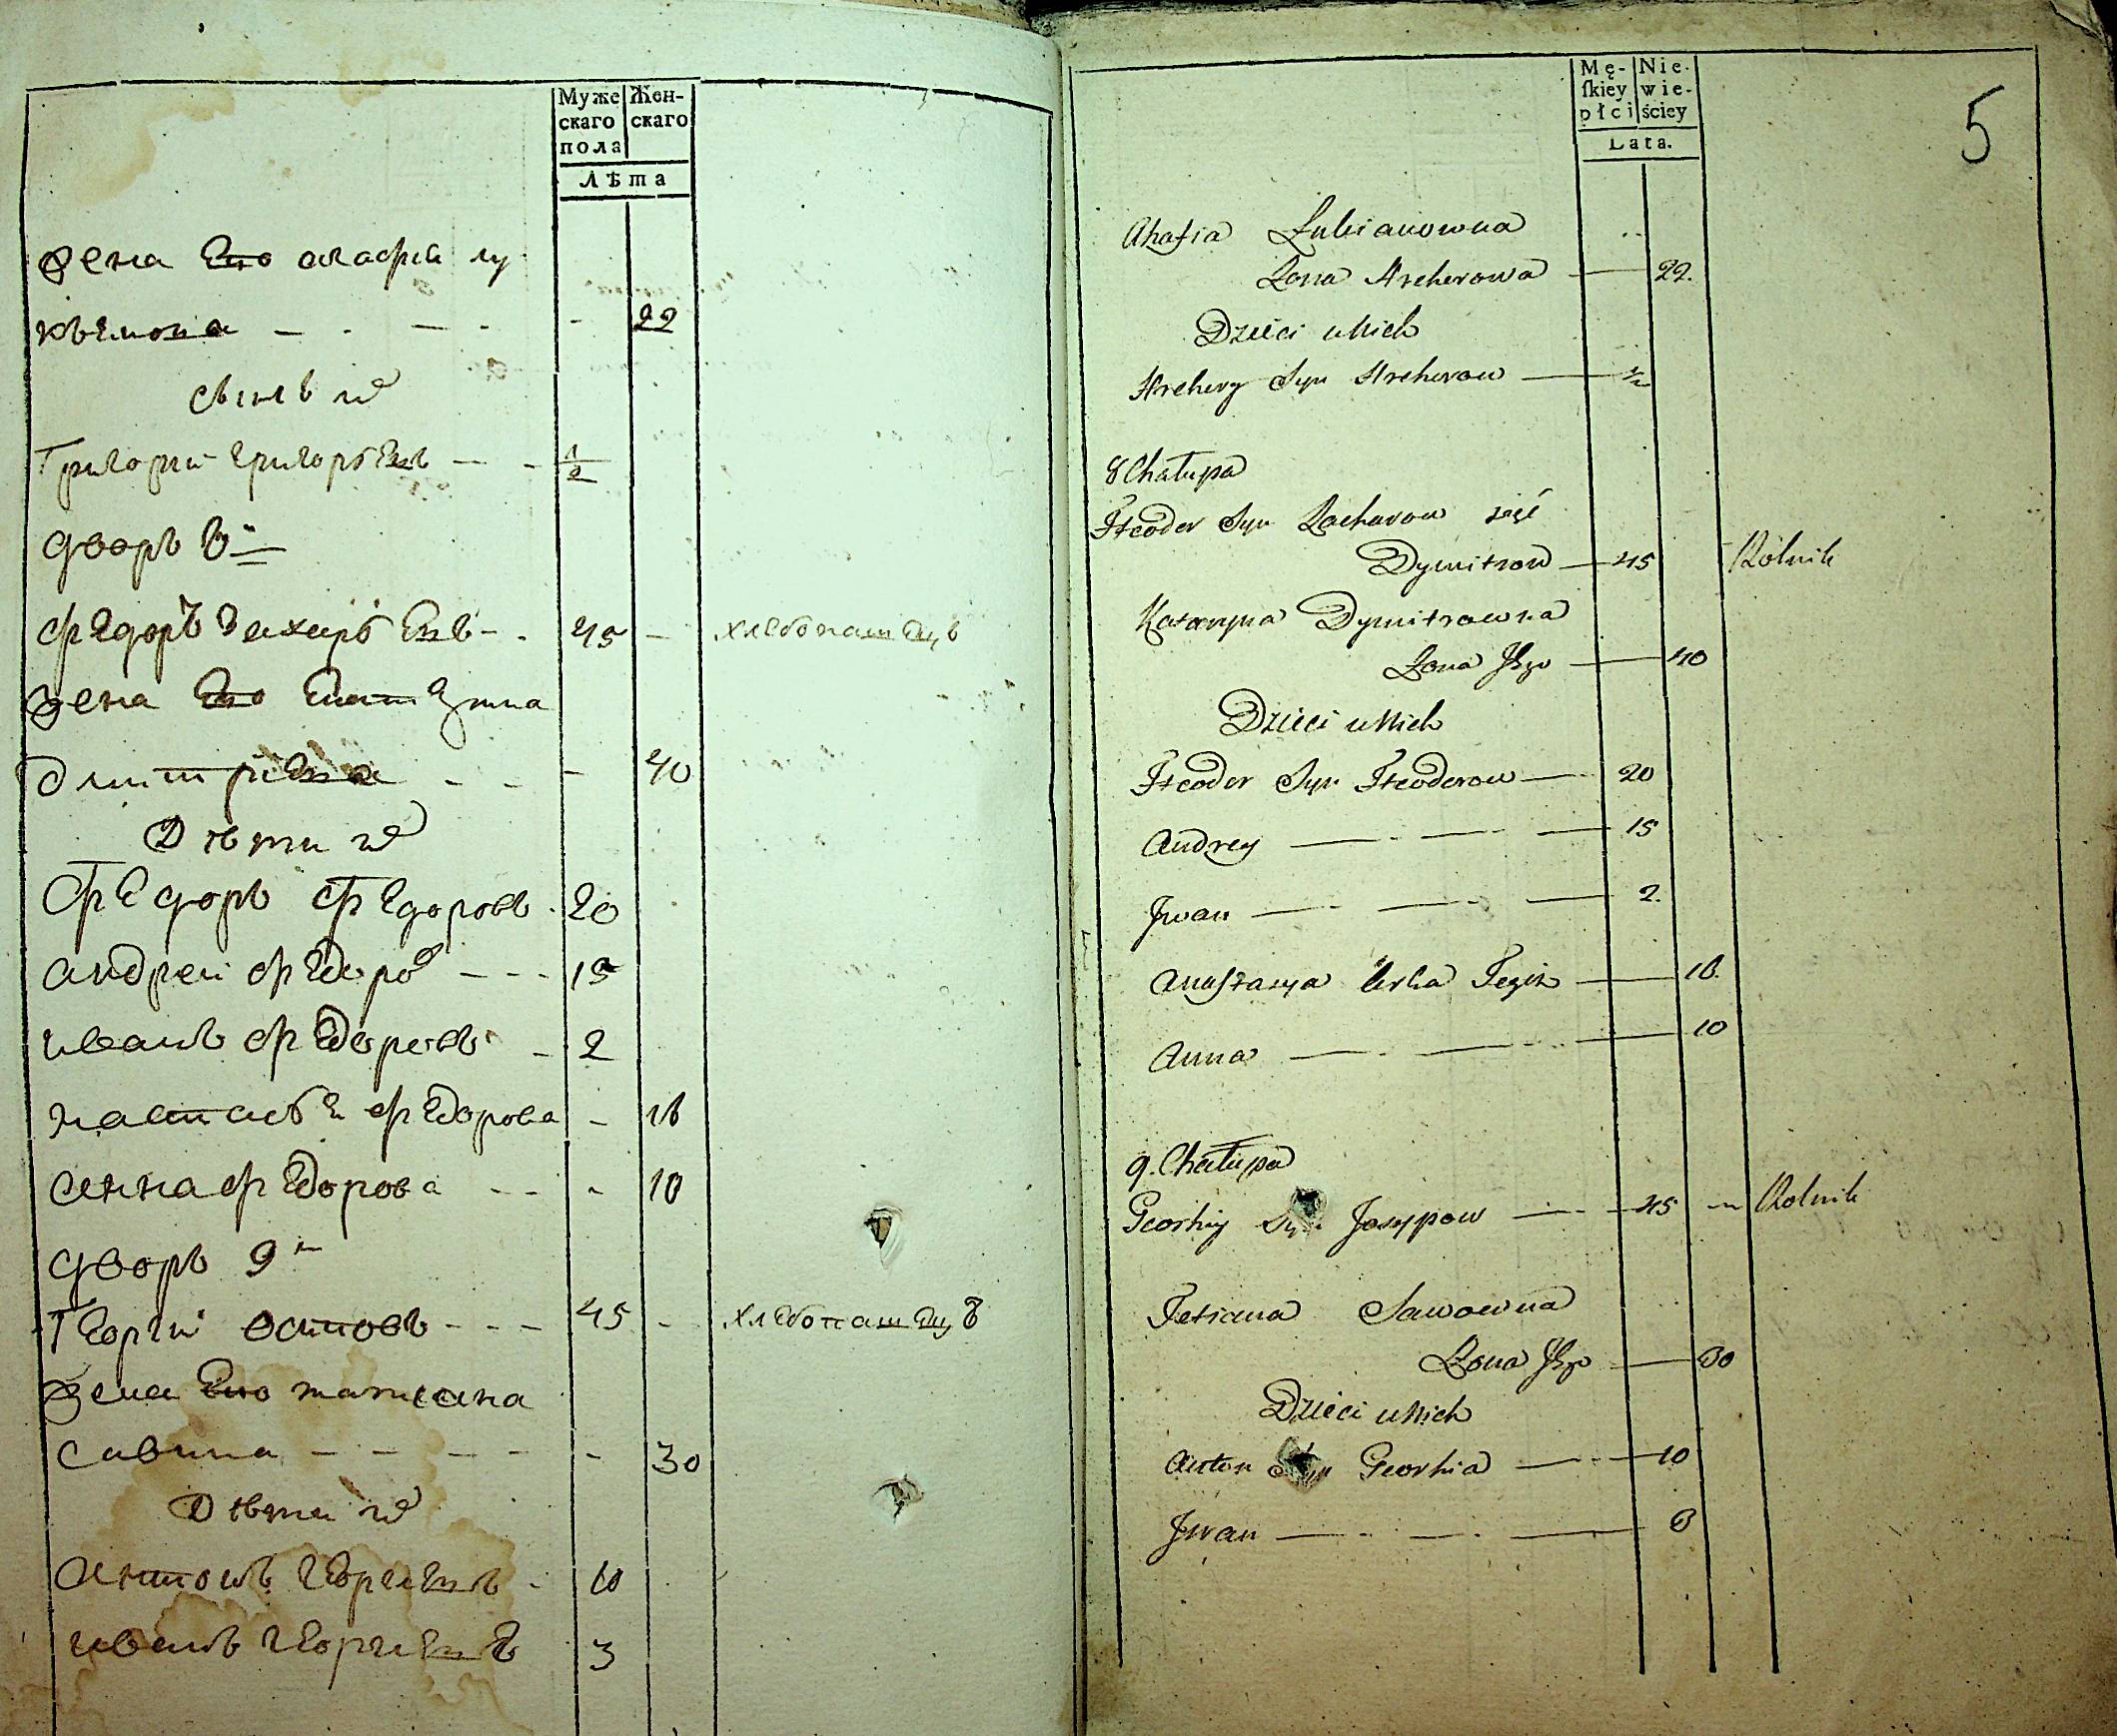 Муже Жен-
скаго скаго
пола
Лѣта
жена Его агафиа лу
кьянова — . — . - 22
сынъ их
Григории григорьевъ — - 1/2
дворъ 8й
Федоръ Захарьевъ - . 45 — хлебопашецъ
жена Его Екатерина
дмитриева - - — 40
Дѣти их
Федоръ Федоровъ . 20
андреи Федоров - - - 15
иванъ Федоровъ - 2
настасья Федорова - 16
анна Федорова - - - 10
дворъ 9й
Георгии осиповъ - - - 45 - хлебопашецъ
жена Его татиана
савина — — — - - 30
Дѣти их
антонъ георгиевъ - 10
иванъ георгиевъ 3
Mę- Nie-
ſkiey wie-
płci ściey
Lata.
5
Ahafia Łukianowna
Żona Hrehorowa — 22.
Dzieci u Nich
Hrehory Syn Hrehorow — 1/2
8 Chałupa
Fteodor Syn Zacharow zięć
Dymitrow — 45 Rolnik
Katarzyna Dymitrowna
Żona Jego — 40
Dzieci u Nich
Fteodor Syn Fteodorow — 20
Andrey — - — - — 15
Jwan — - — - — 2.
Anastazya Corka Tegoż — 16.
Anna — - — - - — 10
9. Chałupa
Georhiy Syn Jozypow — - — 45 — Rolnik
Tetiana Sawowna
Żona Jego — 30
Dzieci u Nich
Anton Syn Georhia — - — 10
Jwan — - - — - — 3